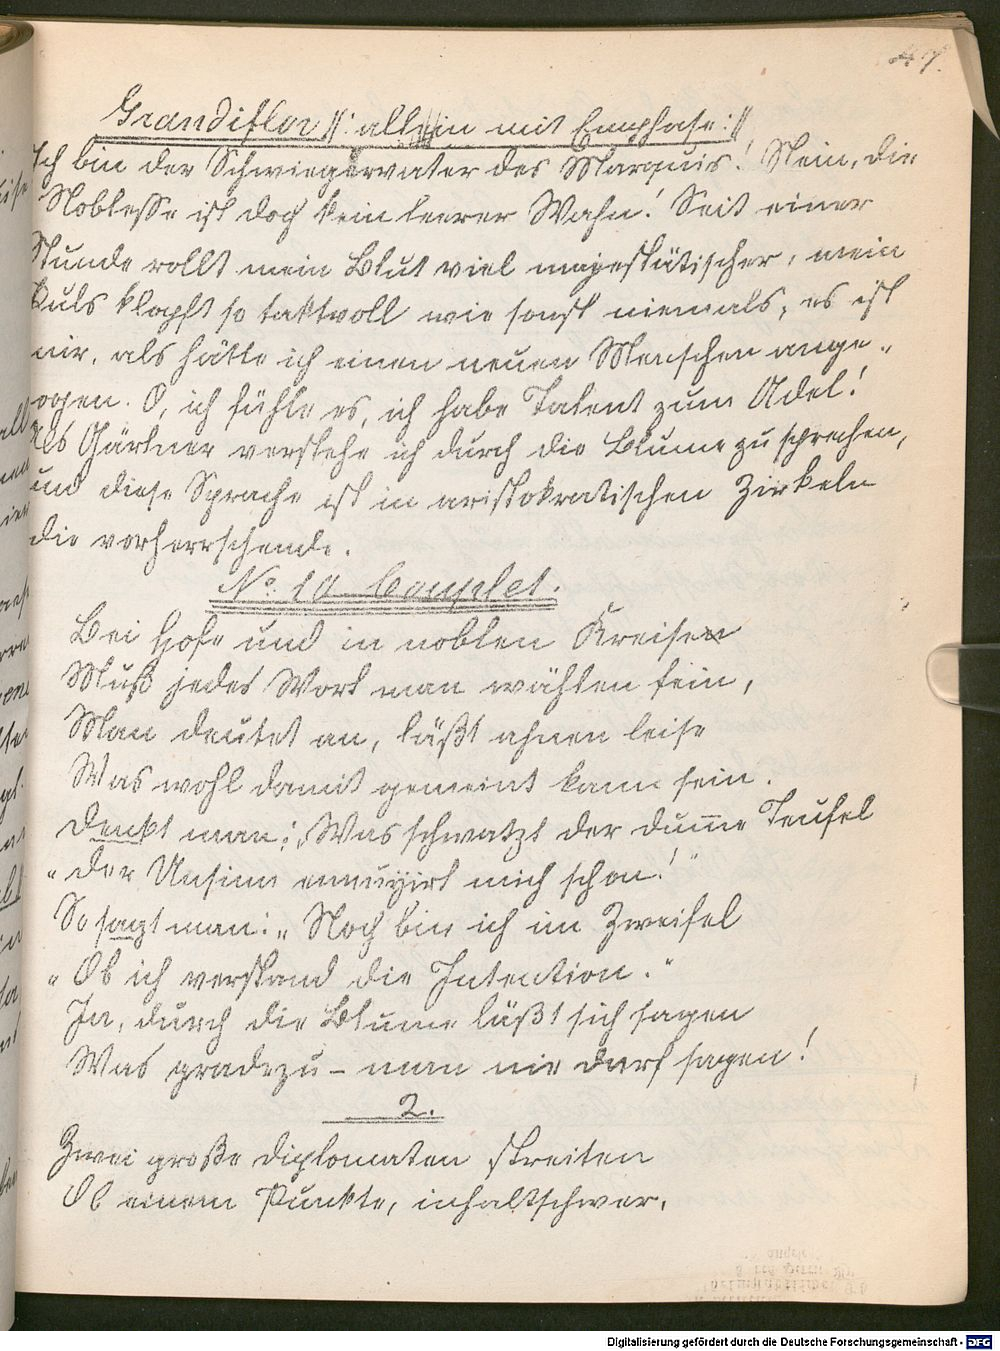 47.
Grandiflor //: allein mit Emphase ://
Ich bin der Schwiegervater des Marquis! Nein, die
Noblesse ist doch kein leerer Wahn! Seit einer
Stunde rollt mein Blut viel majestätischer, mein
Puls klopft so taktvoll wie sonst niemals, es ist
mir, als hätte ich einen neuen Menschen ange-
ogen. O, ich fühle es, ich habe Talent zum Adel!
Als Gärtner verstehe ich durch die Blume zu sprechen,
und diese Sprache ist in aristokratischen Zirkeln
die vorherrschende.
No. 10 Couplet.
Bei Hofe und in noblen Kreisen
Muß jedes Wort man wählen fein,
Man deutet an, läßt ahnen leise
Was wohl damit gemeint kann sein.
Denkt man: „Was schwatzt der dum̅e Teufel
„Der Unsinn ennuyirt mich schon!"
So sagt man: „Noch bin ich im Zweifel
„Ob ich verstand die Intention."
Ja, durch die Blume läßt sich sagen
Was gradezu – man nie darf sagen!
2.
Zwei große Diplomaten streiten
Ob einem Punkte, inhaltschwer,
Digitalisierung gefördert durch die Deutsche Forschungsgemeinschaft - DFG